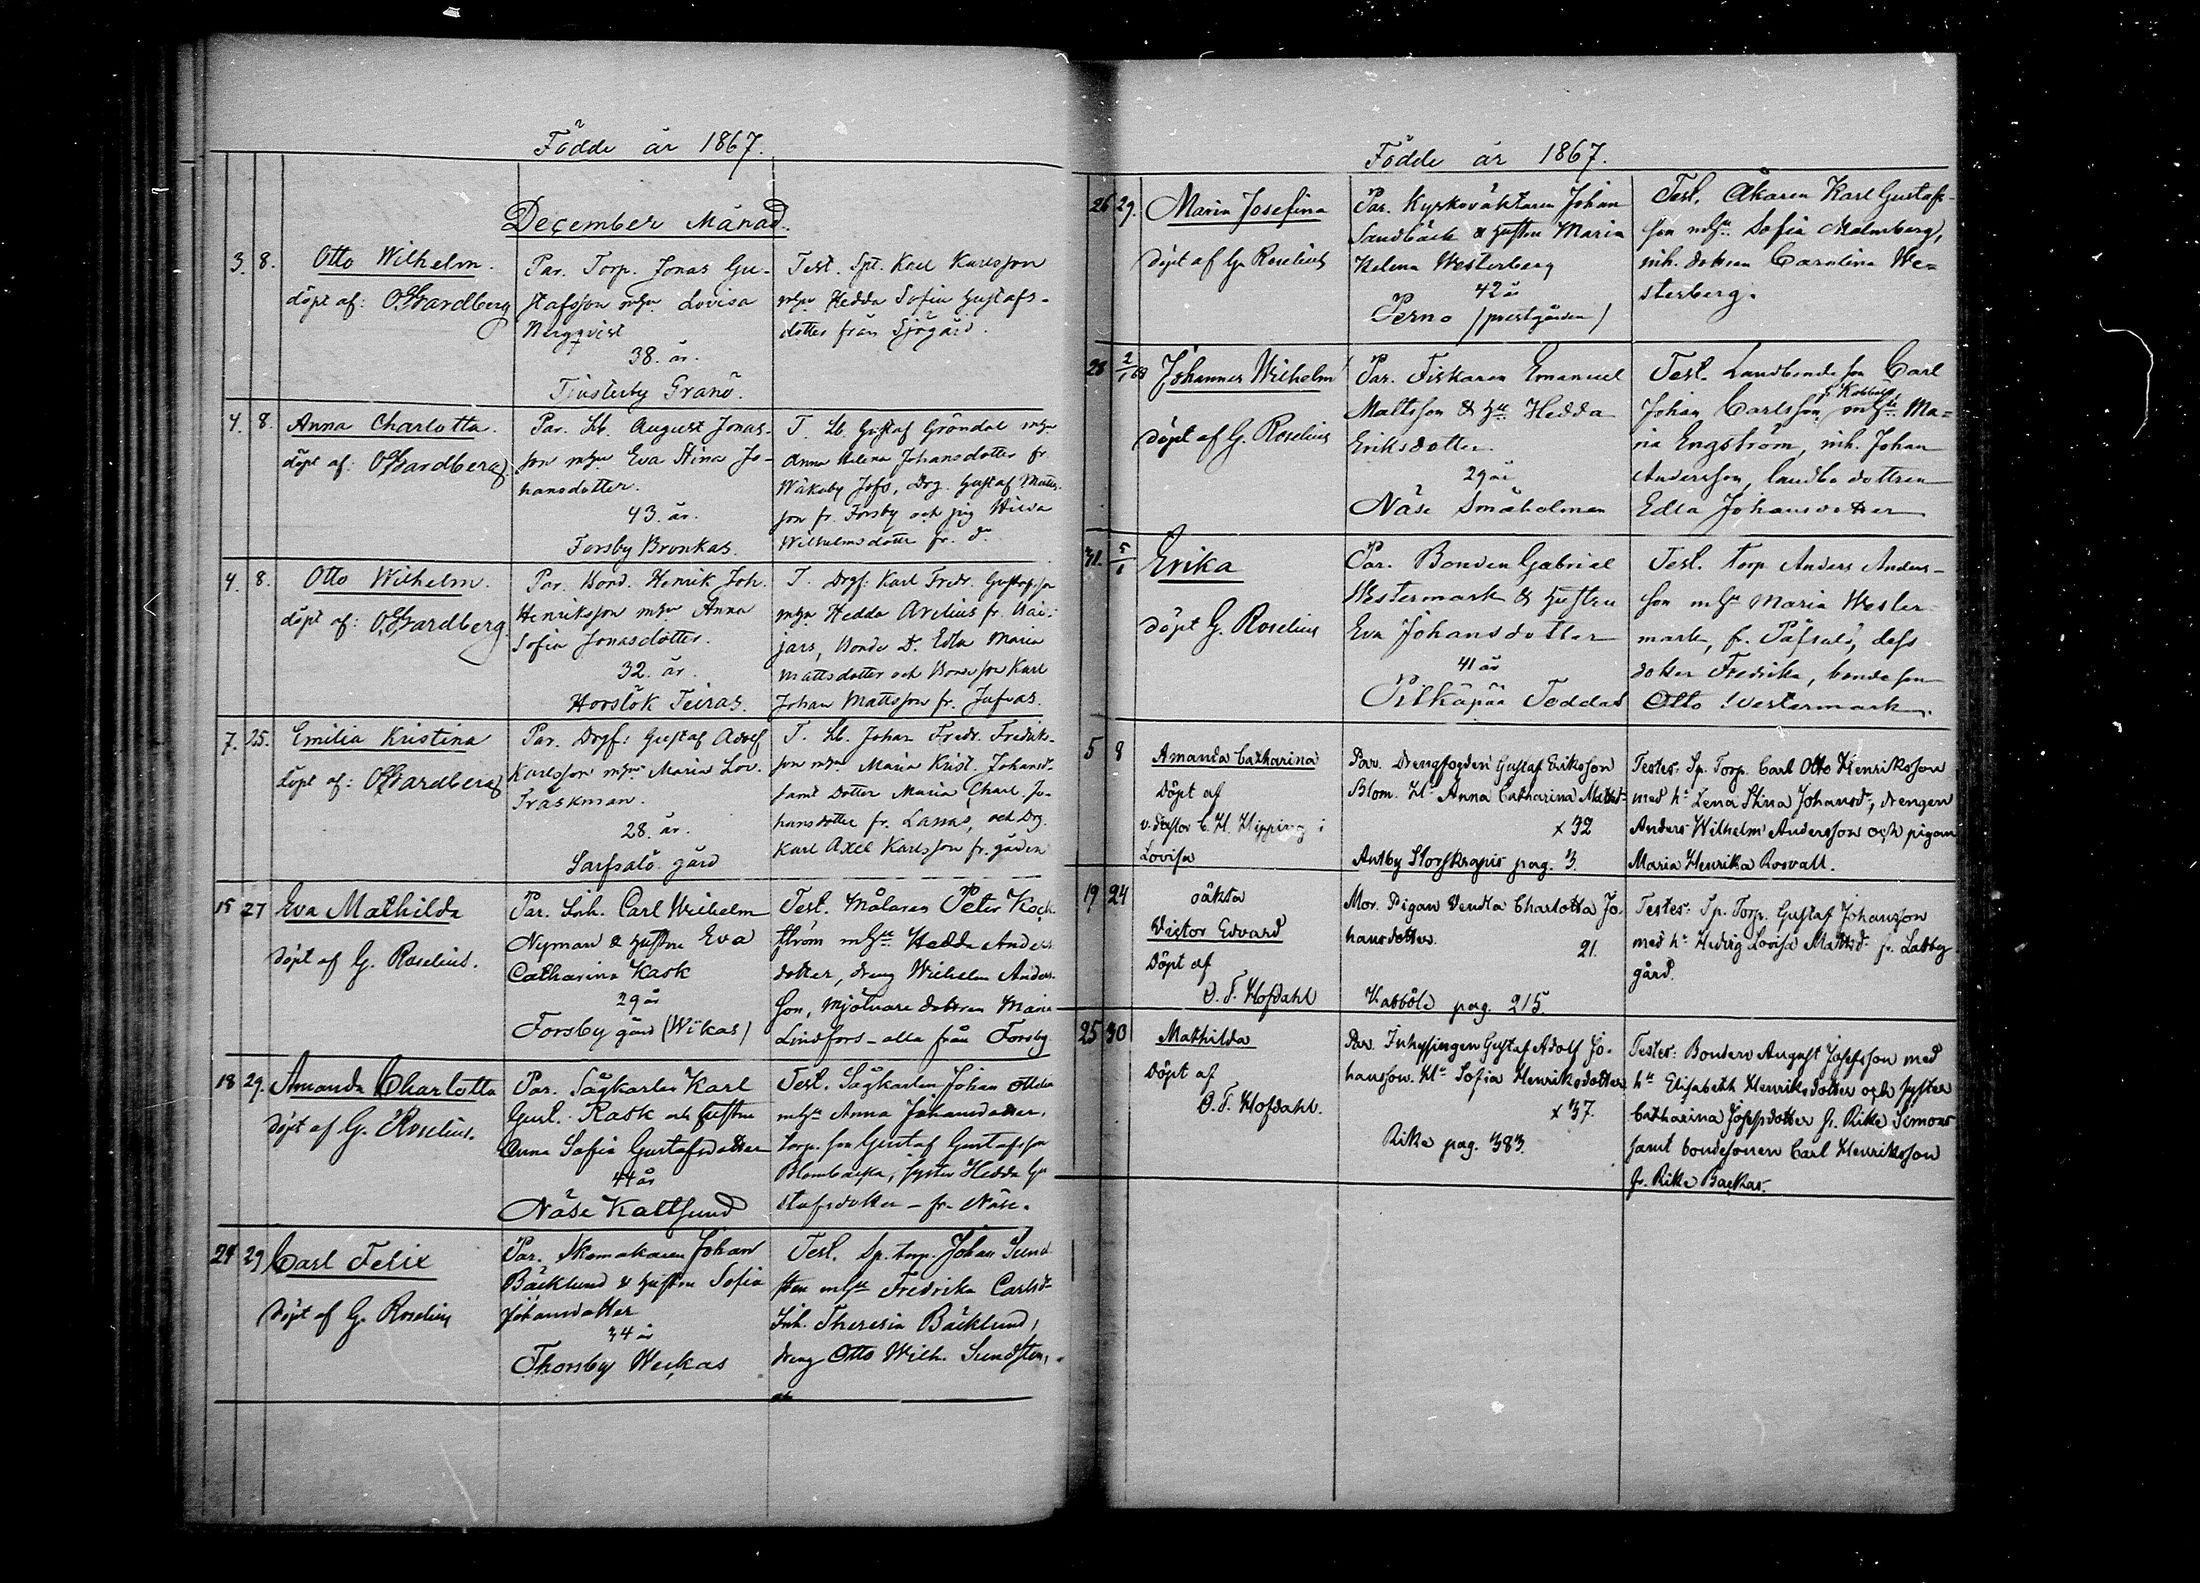 Födde år 1867.
December Månad.
3. 8. Otto Wilhelm.
döpt af: O Gardberg
Par. Torp. Jonas Gu-
stafsson mhu Lovisa
Bergqvist
38. år.
Tjusterby Granö.
Test. Spt. Karl Karlsson
mhu Hedda Sofia Gustafs-
dotter från Sjögård.
4. 8. Anna Charlotta.
döpt af: O Gardberg
Par. Lb. August Jonas-
son mhu Eva Stina Jo-
hansdotter.
43. år.
Forsby Bronkas.
T. Lb. Gustaf Gröndal mhu
Anna Helena Johansdotter fr.
Wåkeby Jofs, Drg. Gustaf Matts-
son fr. Forsby och pig Hilda
Wilhelmsdotter fr. d:o
4. 8. Otto Wilhelm.
döpt af: O. Gardberg
Par. Bond. Henrik Joh.
Henriksson mhu Anna
Sofia Jonasdotter.
32. år.
Horslök Teiras.
T. Drgf. Karl Fredr. Gustafsson
mhu Hedda Avelius fr.
jars, Bonde D. Edla Maria
Mattsdotter och Bondeson Karl
Johan Mattsson fr. Jufvas.
7. 25. Emilia Kristina
döpt af: O Gardberg
Par. Drgf: Gustaf Adolf
Karlsson mhu Maria Lov.
Träskman.
28. år.
Sarfsalö gård
T. Lb. Johan Fredr. Fredriks-
son mhu Maria Krist. Johansd.
samt Dotter Maria Charl. Jo-
hansdotter fr. Lassas, och Drg.
Karl Axel Karlsson fr. gården
15 27 Eva Mathilda
döpt af G. Roselius.
Par. Inh. Carl Wilhelm
Nyman & hustru Eva
Catharina Kask
29 år
Forsby gård (Wikas)
Test. Målaren Peter Kock-
ström mhu Hedda Anders
dotter, dreng Wilhelm Anders-
son, mjölnare dottren Maria
Lindfors - alla från Forsby
18 29. Amanda Charlotta
döpt af G. Roselius.
Par. Sågkarlen Karl
Gust. Rask och hustru
Anna Sofia Gustafsdotter
44 år
Näse Kaltsund
Test. Sågkarlen Johan
mhu Anna Johansdotter,
torp. son Gustaf Gustafsson
Blombacka, syster Hedda Gu
stafsdotter - fr. Näse.
24 29 Carl Felix
döpt af G. Roselius
Par. Skomakaren Johan
Bäcklund & hustru Sofia
Johansdotter
34 år
Thorsby Weckas
Test. Sp. torp. Johan Sund
sten mhu Fredrika Carlsd:r
Inh. Theresia Bäcklund,
dreng Otto Wilh. Sundsten,
Födde år 1867.
26 29. Maria Josefina
döpt af G. Roselius
Par. Kyrkoväktaren Johan
Sandbäck & hustru Maria
Helena Westerberg
42 år
Perno (prestgården)
Test. Åkaren Karl Gustafs-
son mhu Sofia Malmberg,
inh. dottren Carolina We-
sterberg.
28 2/1 68 Johannes Wilhelm
döpt af G. Roselius
Par. Fiskaren Emanuel
Mattsson & hu Hedda
Eriksdotter
29 år
Näse Småholmen
Test. Landbonde son Carl
Johan Carlsson fr. Kabböle mhu Ma-
ria Engström, inh. Johan
Andersson, landbo dottren
Edla Johansdotter
31. 5/1 Erika
döpt G. Roselius
Par. Bonden Gabriel
Westermark & hustru
Eva Johansdotter
41 år
Pitkäpää Toddas
Test. Torp Anders Anders-
son mhu Maria Wester-
mark, fr. Påfsalö, dess
dotter Fredrika, bondeson
Otto Westermark.
5 8 Amanda Catharina
Döpt af
v. Pastor C. H. Hipping i
Lovisa
Par. Drengfogden Gustaf Eriksson
Blom. H:u Anna Catharina Mattsd:r
x 32
Antby Storskrapis pag. 3.
Testes: Sp. Torp. Carl Otto Henriksson
med h:u Lena Stina Johansd:r, drengen
Anders Wilhelm Andersson och pigan
Maria Henrika Rosvall.
19 24 oäkta
Victor Edvard
Döpt af
O. T. Hofdahl
Mor. Pigan Vendla Charlotta Jo-
hansdotter.
21.
Kabböle pag. 215.
Testes: Sp. Torp. Gustaf Johansson
med h:u Hedvig Lovisa Mattsd:r fr. Labby
gård.
25 30 Mathilda
Döpt af
O. T. Hofdahl.
Par. Inhysingen Gustaf Adolf Jo-
hansson. H:u Sofia Henriksdotter
x 37.
Rike pag. 383.
Testes: Bonden August Josefsson med
h:u Elisabeth Henriksdotter och syster
Catharina Josefsdotter fr. Rike Simons
samt bondesonen Carl Henriksson
fr. Rike Backas.